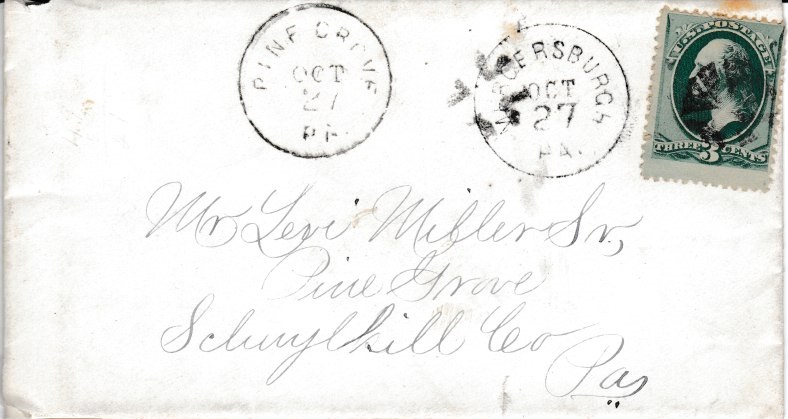 PINE GROVE
OCT
27
PA.
MERCERSBURGH
OCT
27
PA.
U.S. POSTAGE
THREE 3 CENTS
Mr Levi Miller Sr,
Pine Grove
Schuylkill Co
Pa